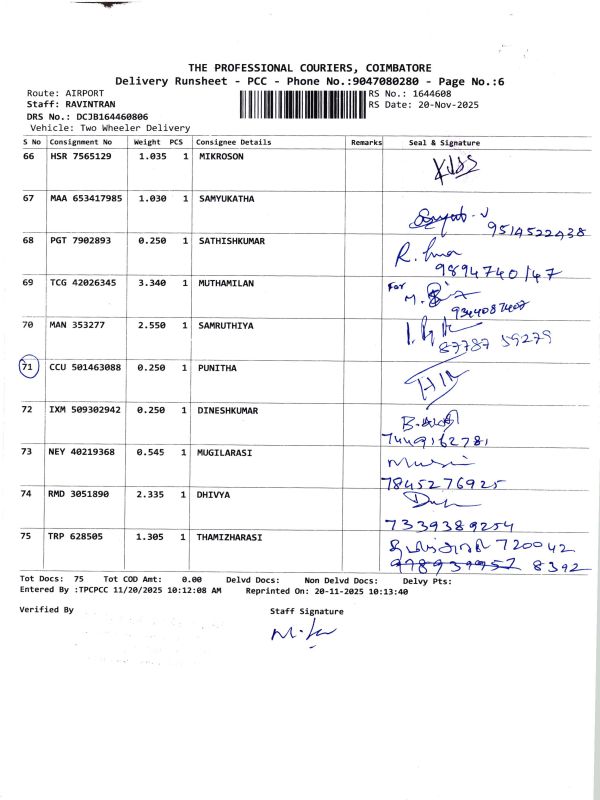 THE PROFESSIONAL COURIERS, COIMBATORE
Delivery Runsheet - PCC - Phone No.:9047080280 - Page No.:6
Route: AIRPORT RS No.: 1644608
Staff: RAVINTRAN RS Date: 20-Nov-2025
DRS No.: DCJB164460806
Vehicle: Two Wheeler Delivery
S No Consignment No Weight PCS Consignee Details Remarks Seal & Signature
66 HSR 7565129 1.035 1 MIKROSON
67 MAA 653417985 1.030 1 SAMYUKATHA
9514522438
68 PGT 7902893 0.250 1 SATHISHKUMAR
9894740147
69 TCG 42026345 3.340 1 MUTHAMILAN For
9344087407
70 MAN 353277 2.550 1 SAMRUTHIYA
87787 59279
71 CCU 501463088 0.250 1 PUNITHA
72 IXM 509302942 0.250 1 DINESHKUMAR
7449162781
73 NEY 40219368 0.545 1 MUGILARASI
7845276925
74 RMD 3051890 2.335 1 DHIVYA
7339389254
75 TRP 628505 1.305 1 THAMIZHARASI
720042
8392
Tot Docs: 75 Tot COD Amt: 0.00 Delvd Docs: Non Delvd Docs: Delvy Pts:
Entered By :TPCPCC 11/20/2025 10:12:08 AM Reprinted On: 20-11-2025 10:13:40
Verified By Staff Signature